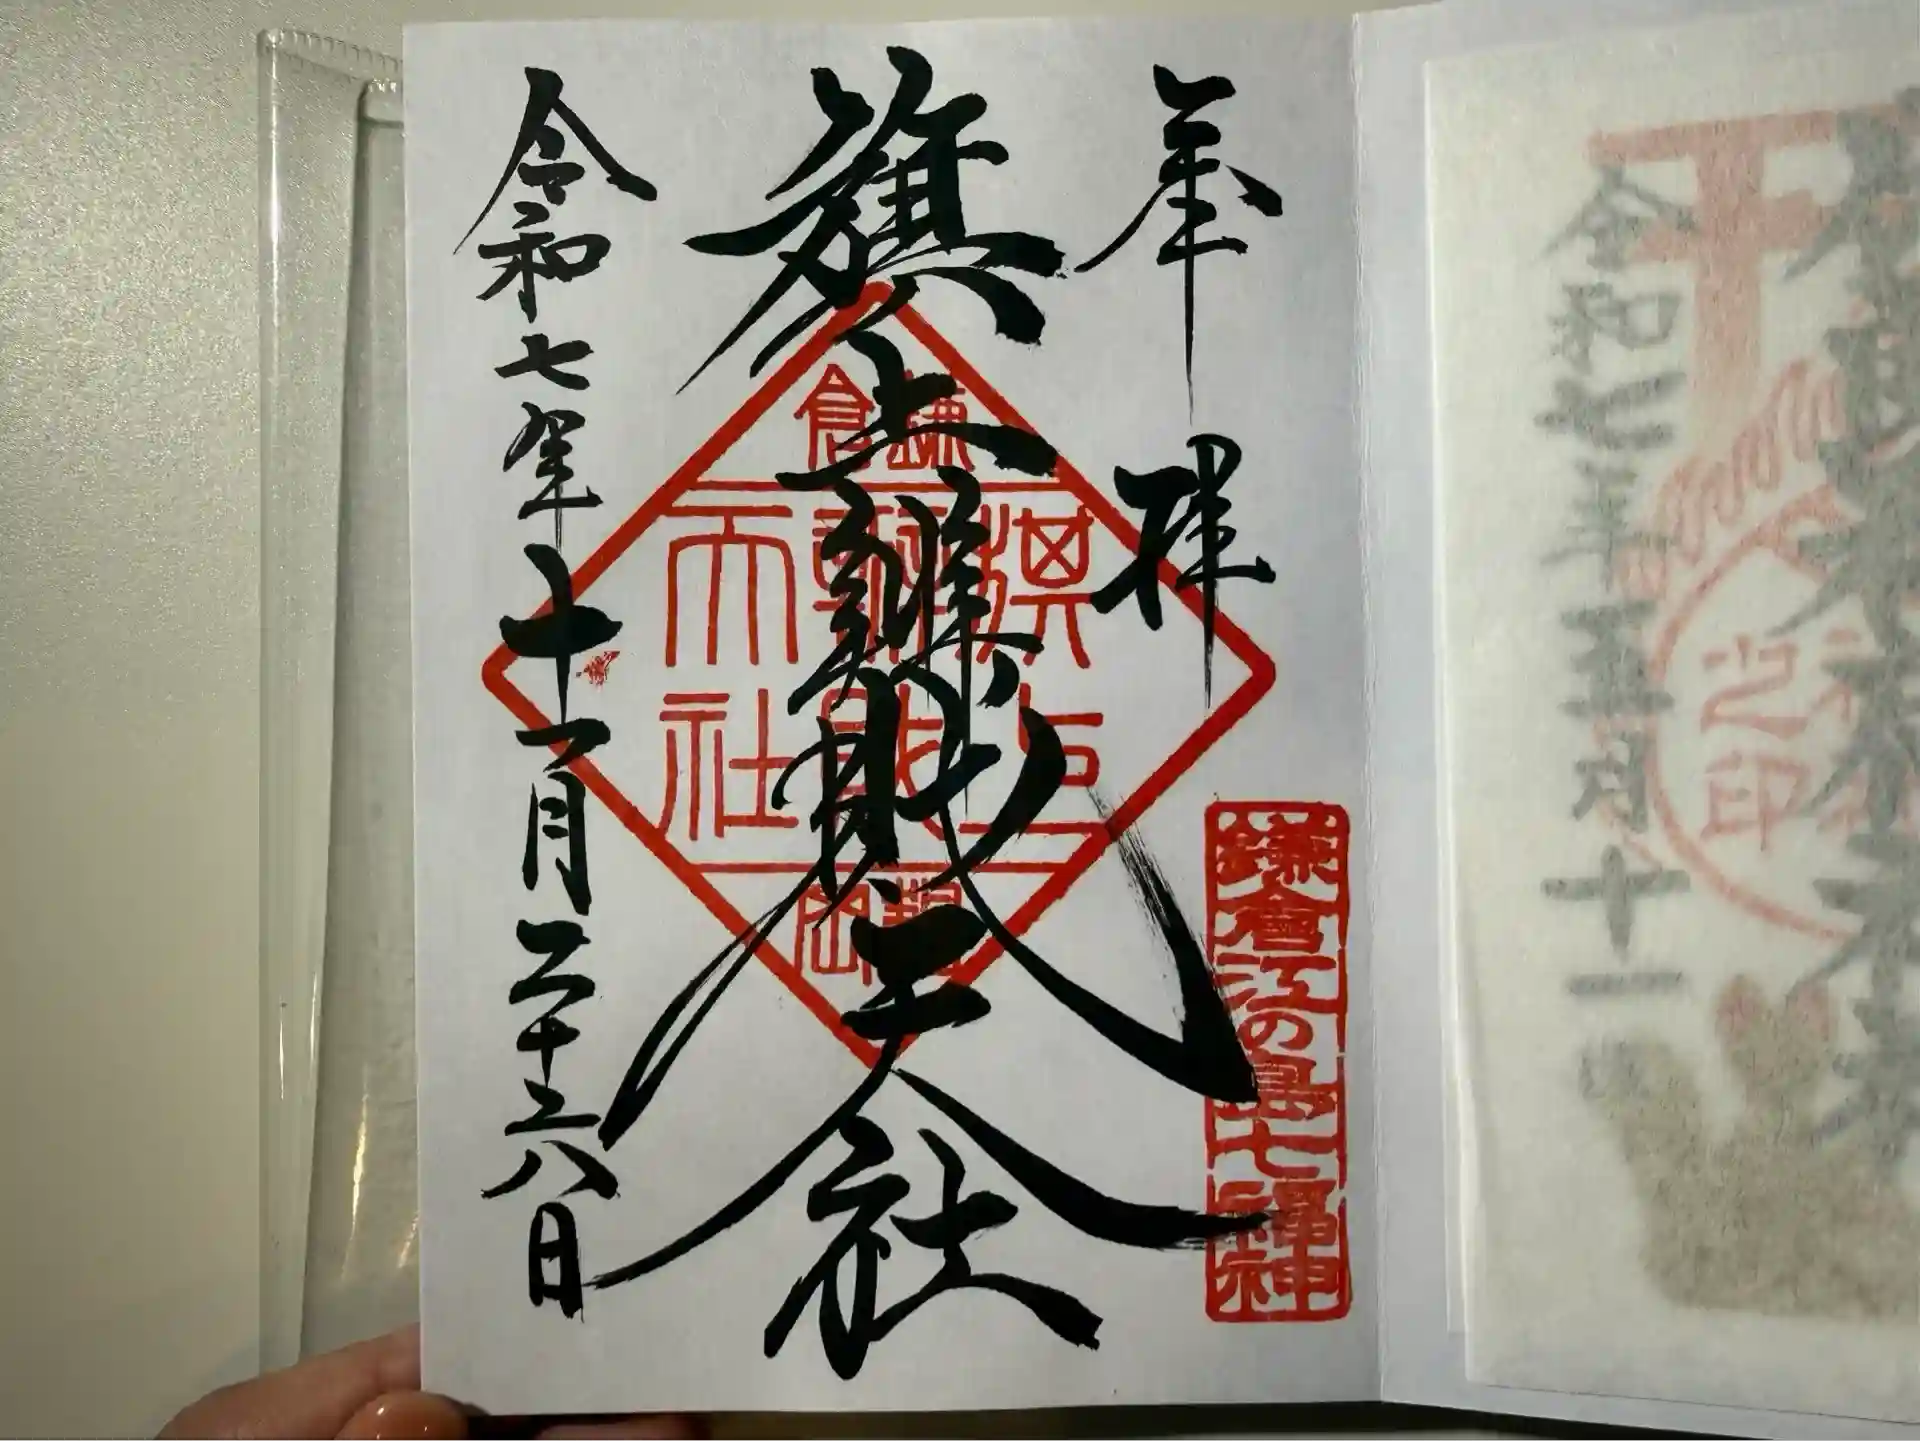 奉拝
鎌倉江の島七福神
旗上辨財天社
鎌倉
旗上
辨財
天社
鶴岡
令和七年十一月二十六日
令和七年五月十一
之印